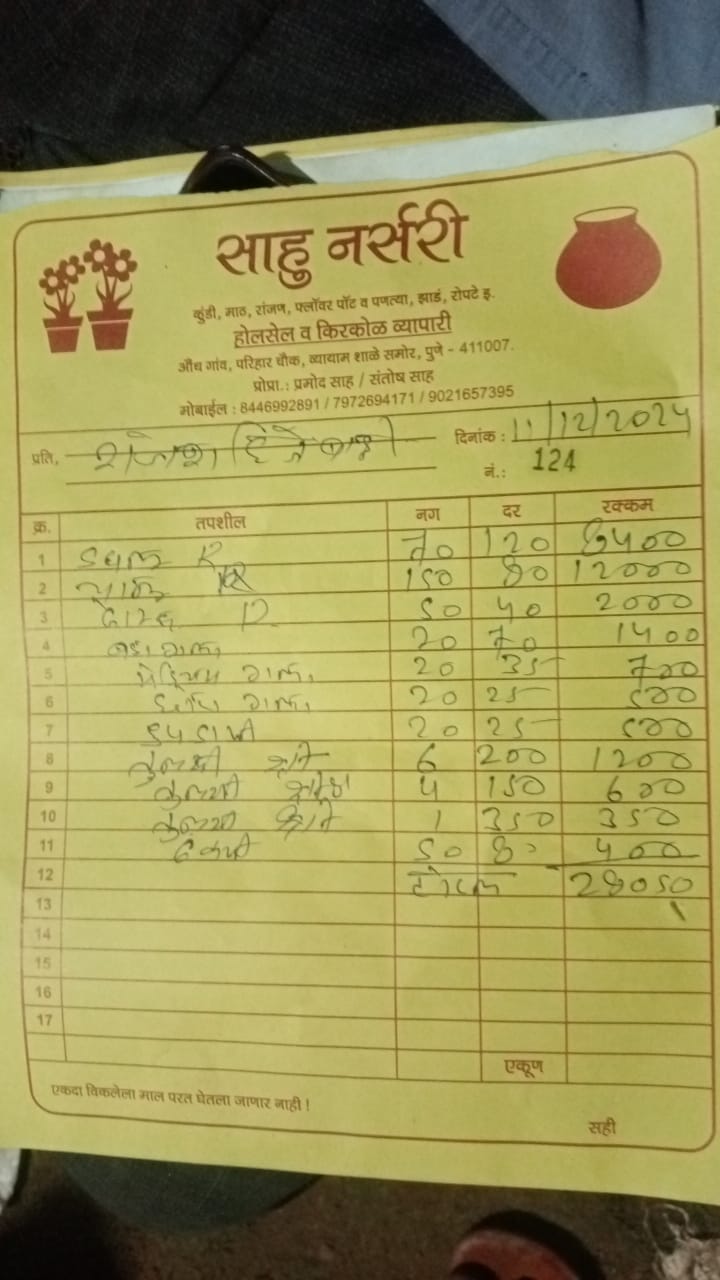 साहु नर्सरी
कुंडी, माठ, रांजण, फ्लॉवर पॉट व पणत्या, झाडं, रोपटे इ.
होलसेल व किरकोळ व्यापारी
औंध गांव, परिहार चौक, व्यायाम शाळे समोर, पुणे - 411007.
प्रोप्रा.: प्रमोद साह / संतोष साह
मोबाईल : 8446992891 / 7972694171 / 9021657395
प्रति, दिनांक : 11/12/2024
नं.: 124
क्र. तपशील नग दर रक्कम
1 डबल R 70 120 8400
2 R 150 80 12000
3 50 40 2000
4 बडा गोल 20 70 1400
5 मेडियम गोल 20 35 700
6 गोल 20 25 500
7 20 25 500
8 तुलसी 6 200 1200
9 तुलसी 4 150 600
10 तुलसी 1 350 350
11 50 8 400
12 टोटल 28050
13
14
15
16
17
एकूण
एकदा विकलेला माल परत घेतला जाणार नाही !
सही